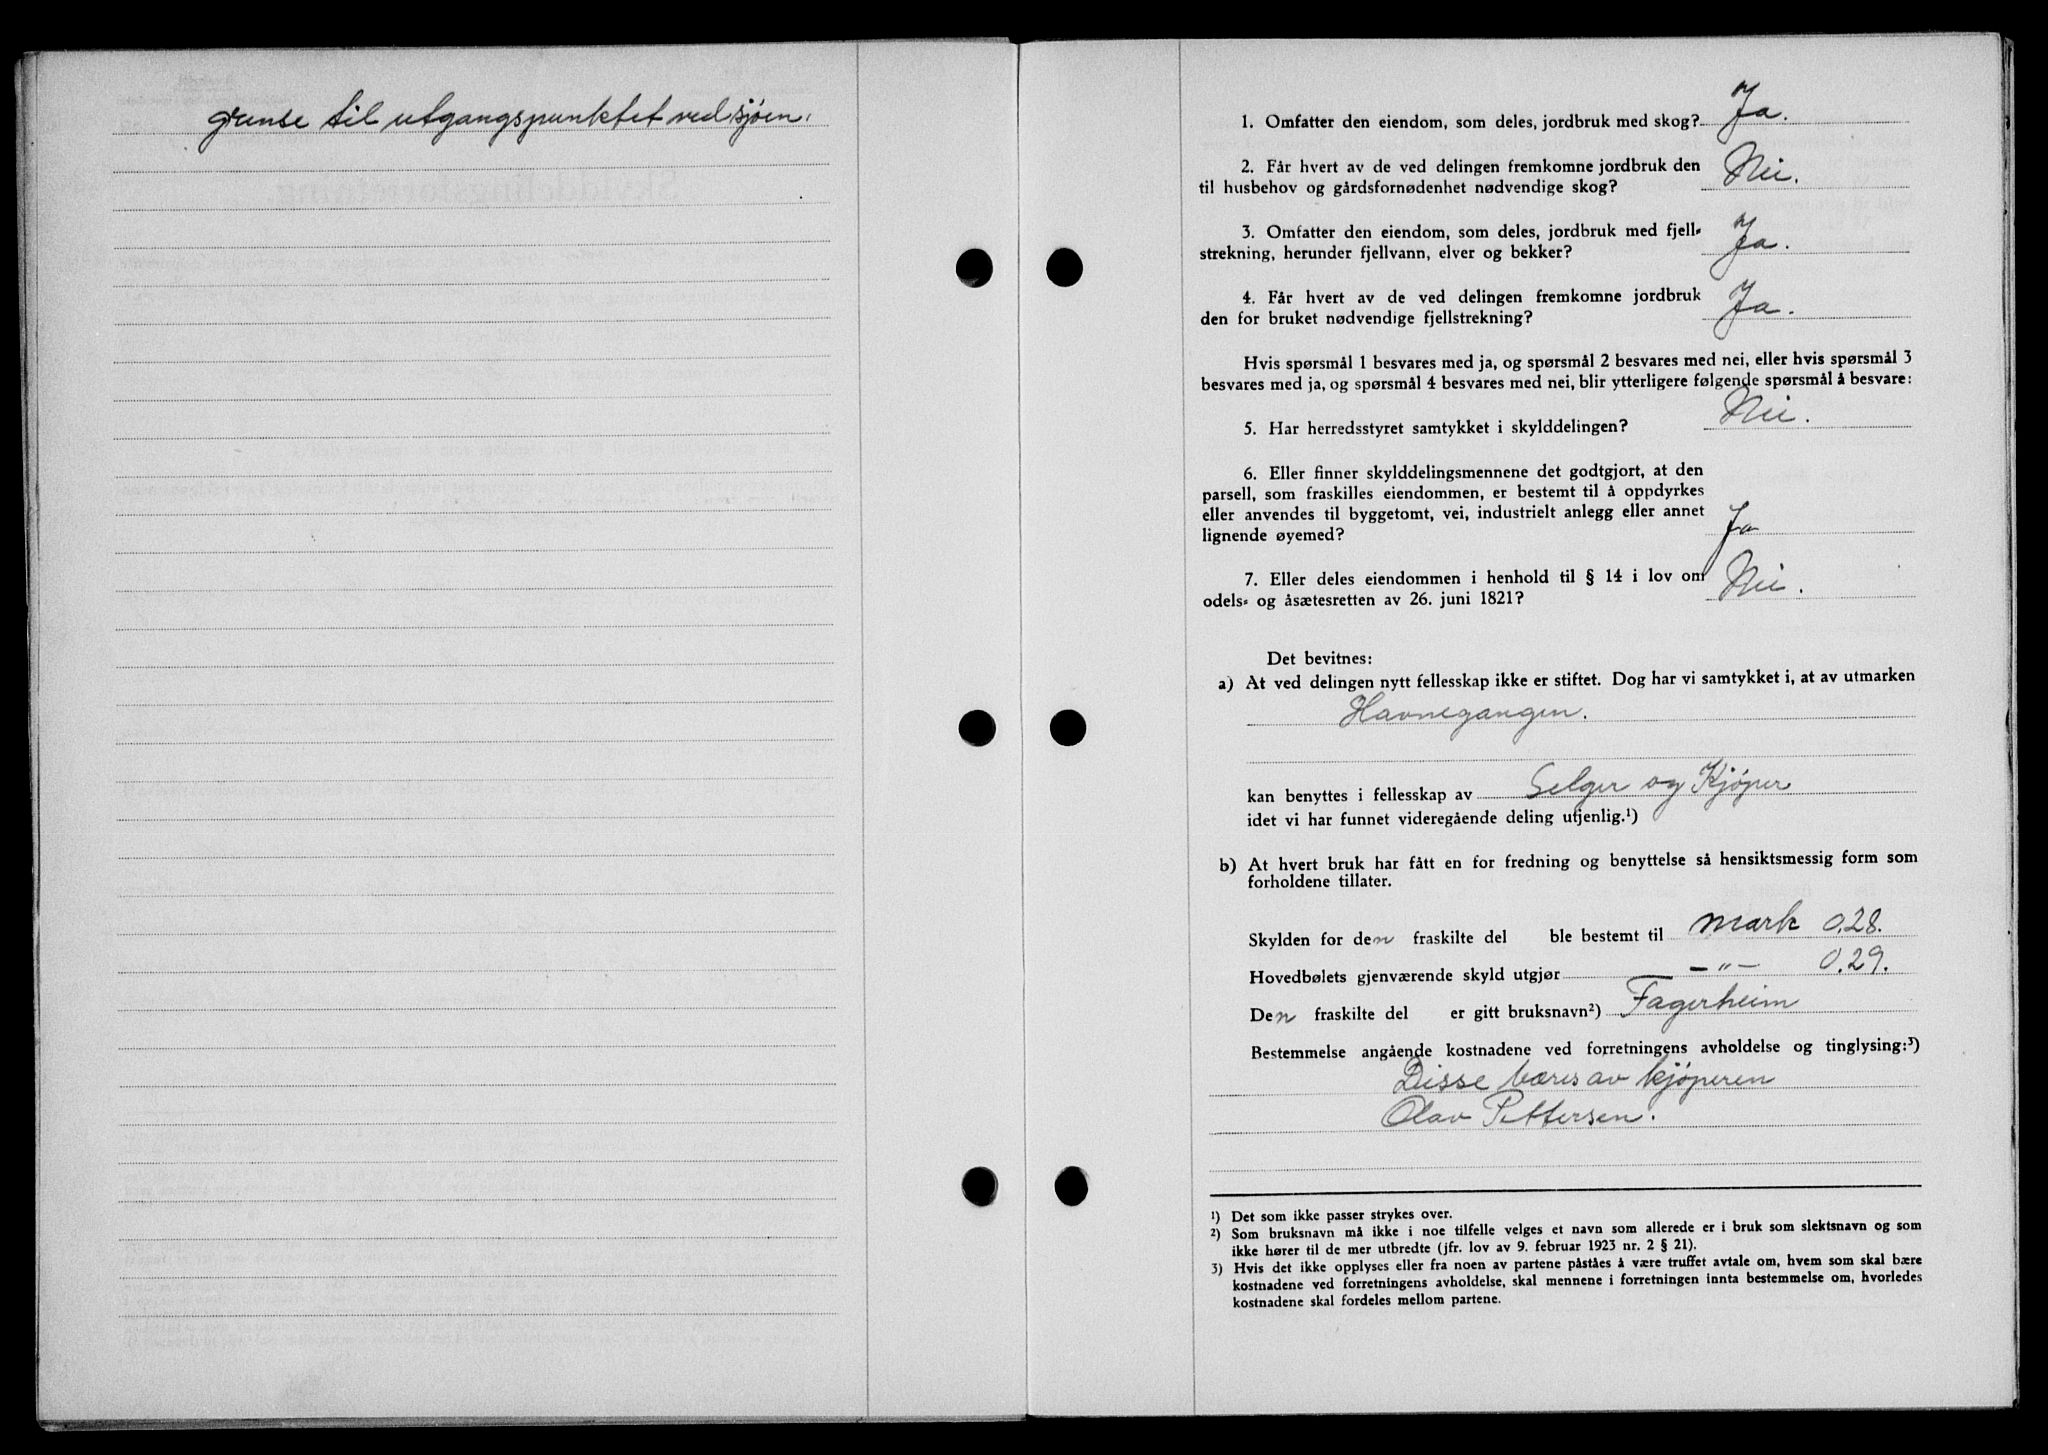 grense til utgangspunktet ved sjøen.
1. Omfatter den eiendom, som deles, jordbruk med skog? Ja.
2. Får hvert av de ved delingen fremkomne jordbruk den
til husbehov og gårdsfornødenhet nødvendige skog? Nei.
3. Omfatter den eiendom, som deles, jordbruk med fjell-
strekning, herunder fjellvann, elver og bekker? Ja.
4. Får hvert av de ved delingen fremkomne jordbruk
den for bruket nødvendige fjellstrekning? Ja.
Hvis spørsmål 1 besvares med ja, og spørsmål 2 besvares med nei, eller hvis spørsmål 3
besvares med ja, og spørsmål 4 besvares med nei, blir ytterligere følgende spørsmål å besvare:
5. Har herredsstyret samtykket i skylddelingen? Nei.
6. Eller finner skylddelingsmennene det godtgjort, at den
parsell, som fraskilles eiendommen, er bestemt til å oppdyrkes
eller anvendes til byggetomt, vei, industrielt anlegg eller annet
lignende øyemed? Ja
7. Eller deles eiendommen i henhold til § 14 i lov om
odels- og åsætesretten av 26. juni 1821? Nei.
Det bevitnes:
a) At ved delingen nytt fellesskap ikke er stiftet. Dog har vi samtykket i, at av utmarken
Havnegangen.
kan benyttes i fellesskap av Selger og Kjøper
idet vi har funnet videregående deling utjenlig.¹)
b) At hvert bruk har fått en for fredning og benyttelse så hensiktsmessig form som
forholdene tillater.
Skylden for den fraskilte del ble bestemt til mark 0.28.
Hovedbølets gjenværende skyld utgjør —"— 0.29.
Den fraskilte del er gitt bruksnavn²) Fagerheim
Bestemmelse angående kostnadene ved forretningens avholdelse og tinglysing:³)
Disse bæres av kjøperen
Olav Pettersen.
¹) Det som ikke passer strykes over.
²) Som bruksnavn må ikke i noe tilfelle velges et navn som allerede er i bruk som slektsnavn og som
ikke hører til de mer utbredte (jfr. lov av 9. februar 1923 nr. 2 § 21).
3) Hvis det ikke opplyses eller fra noen av partene påståes å være truffet avtale om, hvem som skal bære
kostnadene ved forretningens avholdelse, skal mennene i forretningen innta bestemmelse om, hvorledes
kostnadene skal fordeles mellom partene.